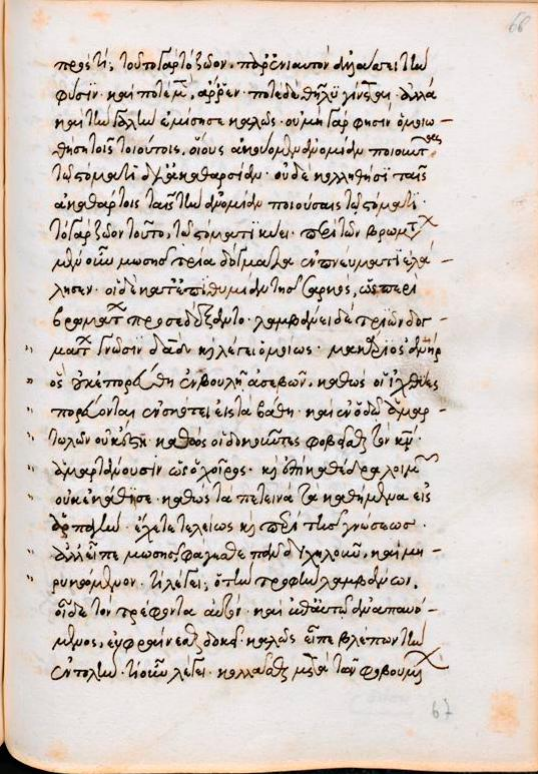 66
πρὸς τί; τοῦτο γὰρ τὸ ζῶον· παρ' ἐνιαυτὸν ἀλλάσσει τὴν
φύσιν· καὶ ποτὲ μὲν, ἄρρεν· ποτὲ δὲ θῆλυ γίνεται· ἀλλὰ
καὶ τὴν γαλὴν ἐμίσησε καλῶς· οὐ μὴ γάρ φησιν ὁμοιω-
θήσῃ τοῖς τοιούτοις, οἵους ἀκούομεν ἀνομίαν ποιοῦντας
τῷ στόματι δι' ἀκαθαρσίαν· οὐδὲ κολληθήσῃ ταῖς
ἀκαθάρτοις ταῖς τὴν ἀνομίαν ποιούσαις τῷ στόματι·
τὸ γὰρ ζῶον τοῦτο, τῷ στόματι κύει· περὶ τῶν βρωμάτων
μὲν οὖν μωσῆς τρία δόγματα ἐν πνεύματι ἐλά-
λησεν· οἱ δὲ κατ' ἐπιθυμίαν τῆς σαρκός, ὡς περὶ
βρωμάτων προσεδέξαντο· λαμβάνει δὲ τριῶν δογ-
μάτων γνῶσιν δαδ κ̀ λέγει ὁμοίως· μακάριος ἀνὴρ
ὃς οὐκ ἐπορεύθη ἐν βουλῇ ἀσεβῶν, καθὼς οἱ ἰχθύες
πορεύονται ἐν σκότει εἰς τὰ βάθη· καὶ ἐν ὁδῷ ἁμαρ-
τωλῶν οὐκ ἔστη· καθὼς οἱ δοκοῦντες φοβεῖσθαι τὸν κν·
ἁμαρτάνουσιν ὡς ὁ χοῖρος· κ̀ ἐπὶ καθέδρα λοιμῶν
οὐκ ἐκάθησε· καθὼς τὰ πετεινὰ τὰ καθήμενα εἰς
ἁρπαγήν· ἔχετε τελείως κ̀ περὶ τῆς γνώσεως·
ἀλλ' εἶπε μωσῆς φάγεσθε πᾶν διχηλοῦν, καὶ μη-
ρυκώμενον· τί λέγει; ὅτι τὴν τροφὴν λαμβάνων,
οἶδε τὸν τρέφοντα αὐτόν· καὶ ἐπ' αὐτῷ ἀναπαυό-
μενος, εὐφραίνεσθαι δοκεῖ· καλῶς εἶπε βλέπων τὴν
ἐντολήν· τί οὖν λέγει· κολλᾶσθαι μετὰ τῶν φοβουμένων
67